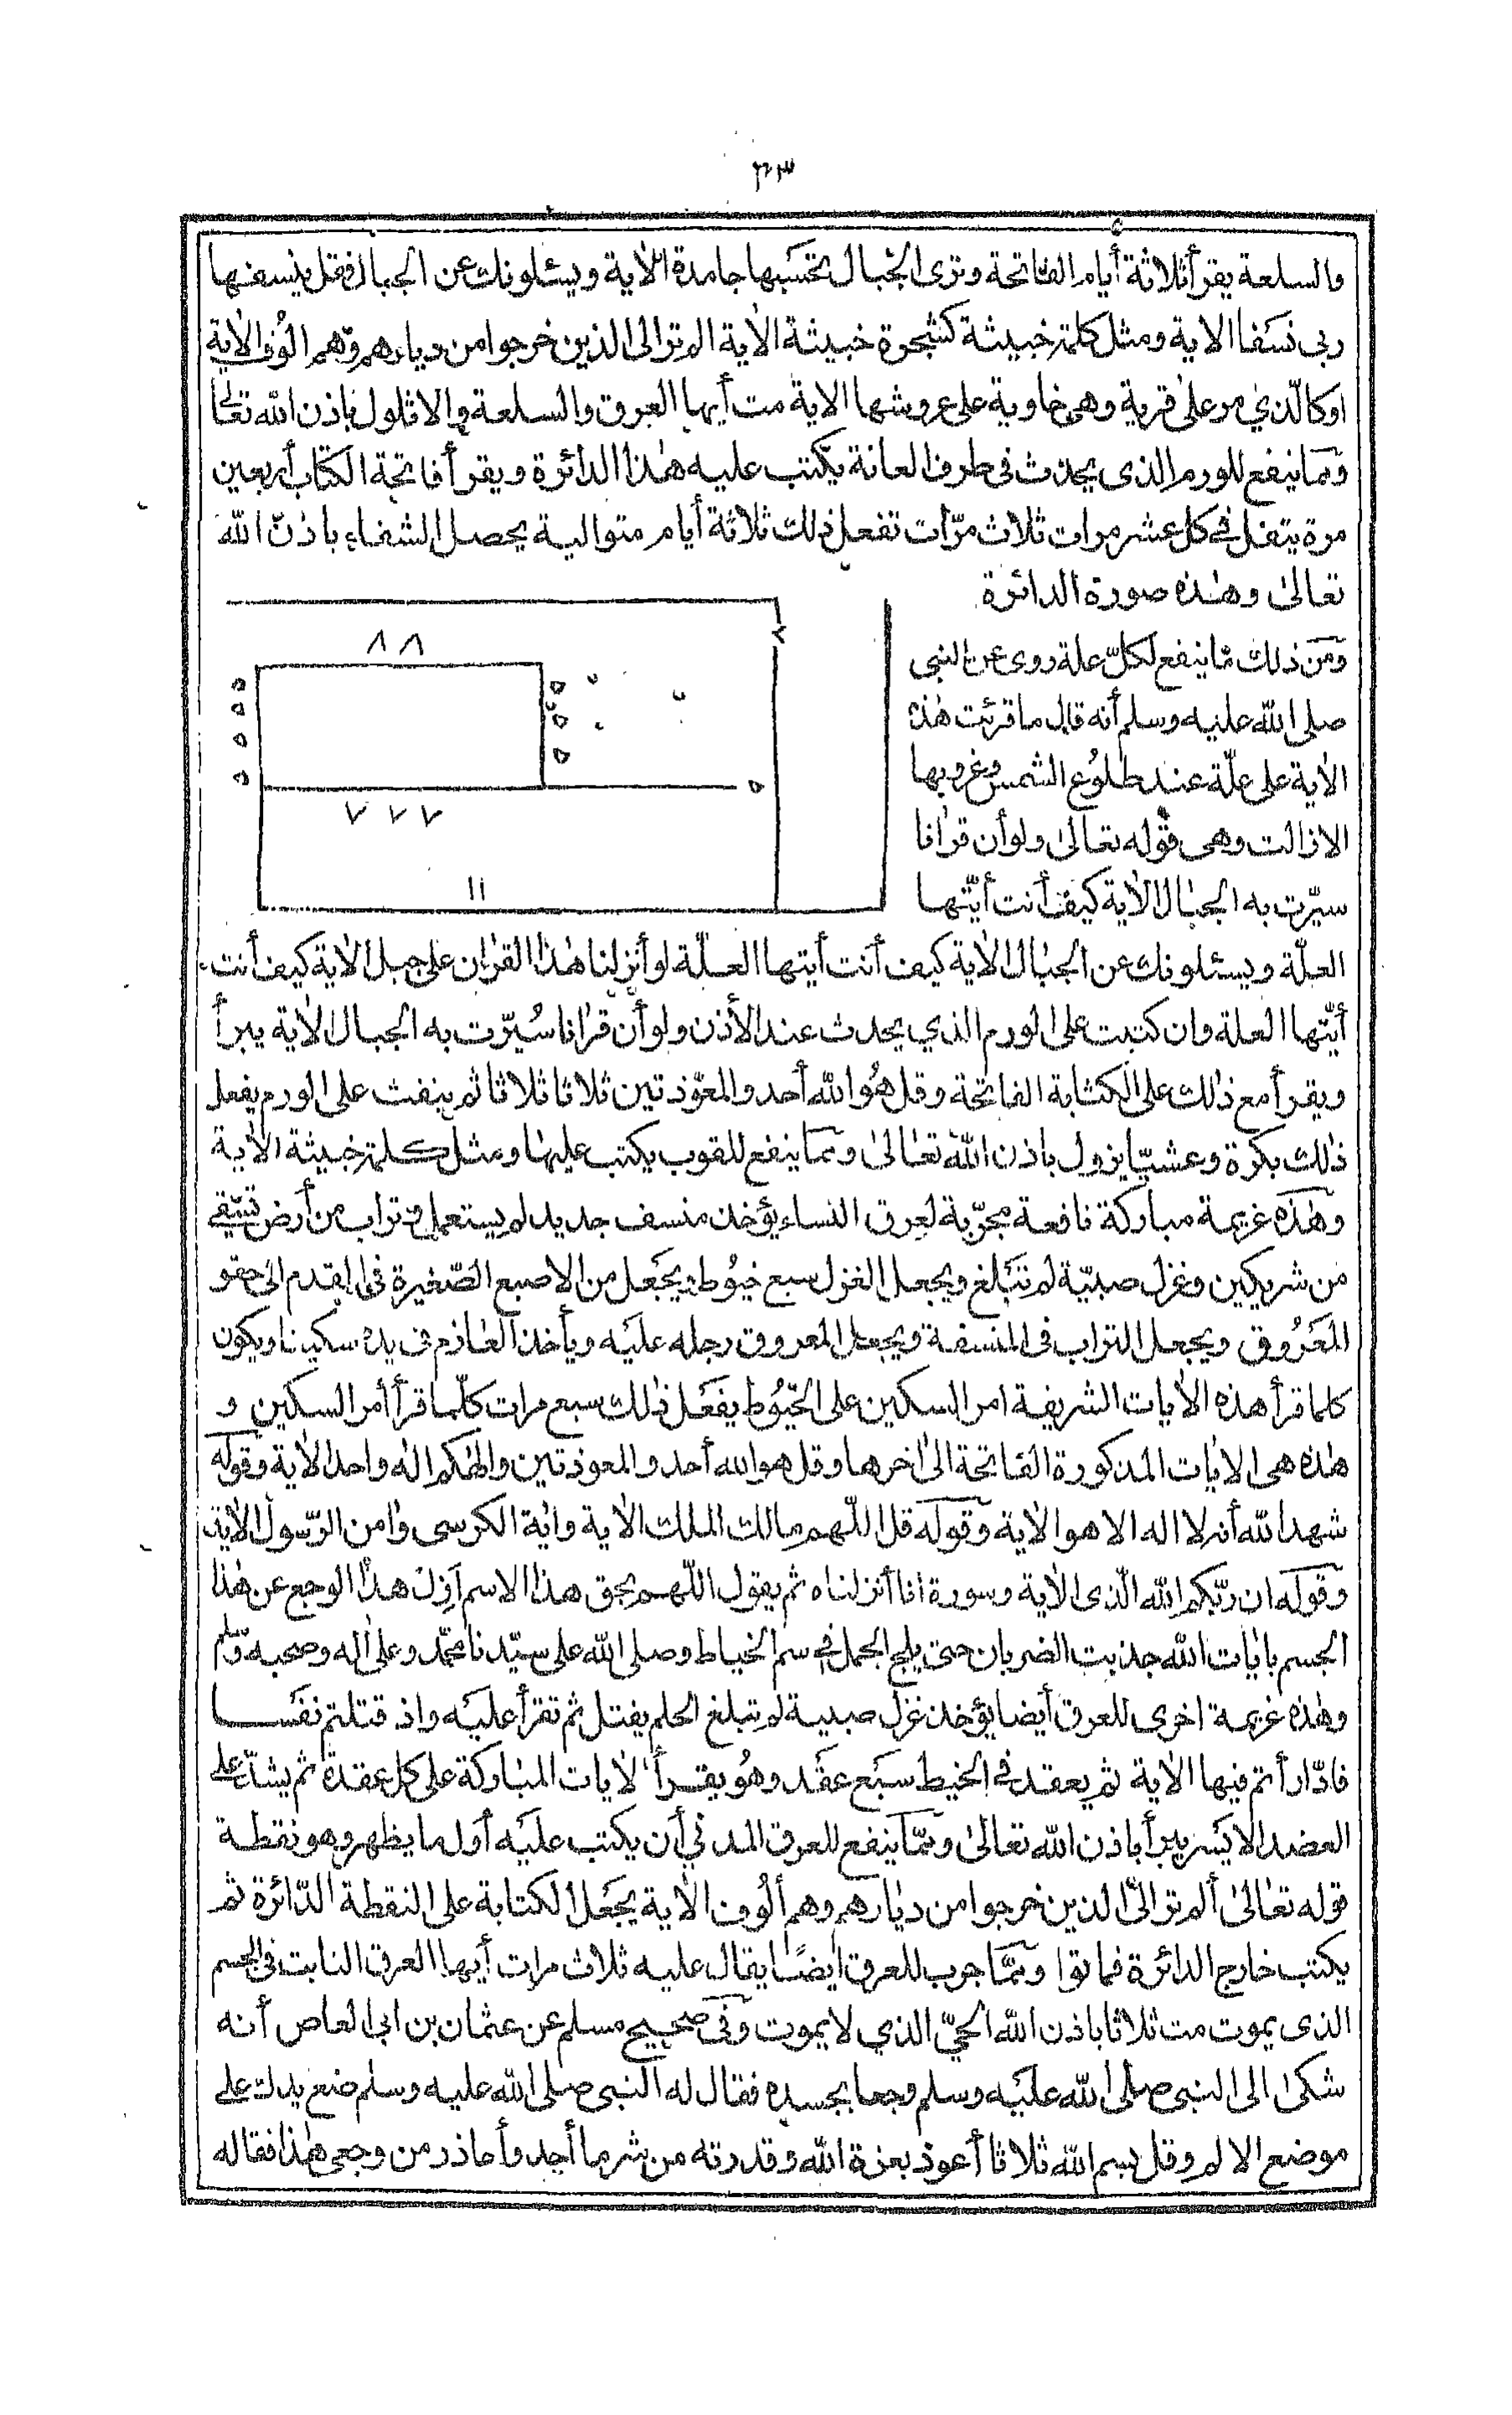 ٢٢٣
والسلعة يقرأ ثلاثة أيام الفاتحة وترى الجبال تحسبها جامدة الاٰية ويسئلونك عن الجبال فقل ينسفها
ربى نسفا الاٰية ومثل كلمة خبيثة كشجرة خبيثة الاٰية الم تر الى الذين خرجوا من ديارهم وهم الوف الاٰية
اوكالّذي مر على قرية وهى خاوية على عروشها الاٰية مت أيها العرق والسلعة والاثلول باذن الله تعالى
ومما ينفع للورم الذى يحدث فى طرف العانة يكتب عليه هٰذا الدائرة ويقرأ فاتحة الكتاب أربعين
مرة يتفل فى كل عشر مرات ثلاث مرّات تفعل ذلك ثلاثة أيام متوالية يحصل الشفاء باذن الله
تعالىٰ وهٰذه صورة الدائرة
٨٨
٧ ٧ ٧
١١
ومن ذلك مما ينفع لكلّ علة روى عن النبى
صلى الله عليه وسلم أنه قال ما قرئت هٰذه
الاٰية على علّة عند طلوع الشمس وغروبها
الا زالت وهى قوله تعالىٰ ولو أن قراٰنا
سيّرت به الجبال الاٰية كيف أنت أيّتها
العلّة ويسئلونك عن الجبال الاٰية كيف أنت أيتها العلّة لو أنزلنا هٰذا القراٰن على جبل الاٰية كيف أنت
أيّتها العلة وان كتبت على الورم الذي يحدث عند الأذن ولو أن قراٰنا سُيّرت به الجبال الاٰية يبرأ
ويقرأ مع ذٰلك على الكتابة الفاتحة وقل هُو الله أحد والمعوّذتين ثلاثا ثلاثا ثم ينفث على الورم يفعل
ذٰلك بكرة وعشيّا يزول باذن الله تعالىٰ ومما ينفع للقوب يكتب عليها ومثل كلمة خبيثة الاٰية
وهٰذه عزيمة مباركة نافعة مجرّبة لعرق النساء يؤخذ منسف جديد لم يستعمل وتراب من أرض تسقى
من شريكين وغزل صبيّة لم تبلغ ويجعل الغزل سبع خيُوط يجعل من الاصبع الصّغيرة فى القدم الى حقو
المعَرُوق ويجعل التراب فى المنسفة ويجعل المعروق رجله عليه ويأخذ العازم فى يده سكينا ويكون
كلما قرأ هذه الاٰيات الشريفة امر السكين على الخيُوط يفعل ذٰلك سبع مرات كلّما قرأ أمر السكين و
هٰذه هى الاٰيات المذكورة الفاتحة الىٰ اٰخرها وقل هو الله أحد والمعوذتين والٰهكم الٰه واحد الاٰية وقوله
شهد الله أنه لا اله الا هو الاٰية وقوله قل اللّهم مالك الملك الاٰية واٰية الكرسى واٰمن الرّسول الاٰية
وقوله ان ربّكم الله الّذى الاٰية وسورة انا أنزلناه ثم يقول اللّهم بحق هذا الاسم أزل هذا الوجع عن هٰذا
الجسم باٰيات الله جذبت الضربان حتى يلج الجمل فى سم الخياط وصلى الله على سيّدنا محمّد وعلى اٰله وصحبه وسلم
وهٰذه عزيمة اخرى للعرق أيضا يؤخذ غزل صبية لم تبلغ الحلم يفتل ثم تقرأ عليه واذ قتلتم نفسا
فادّارأتم فيها الاٰية ثم يعقد فى الخيط سبع عقد وهُو يقرأ الاٰيات المباركة على كل عقدة ثم يشدّ على
العضد الايسر يبرأ باذن الله تعالىٰ وممّا ينفع للعرق المدني أن يكتب عليه أول ما يظهر وهو نقطة
قوله تعالىٰ ألم تر الى الذين خرجوا من ديارهم وهم ألُوف الاٰية يجعل الكتابة على النقطة الدّائرة ثم
يكتب خارج الدائرة فماتوا وممّا جرب للعرق ايضًا يقال عليه ثلاث مرات أيها العرق النابت فى الجسم
الذى يموت مت ثلاثا باذن الله الحيّ الذي لا يموت وفى صحيح مسلم عن عثمان بن ابى العاص أنه
شكىٰ الى النبى صلى الله عليه وسلم وجعا بجسده فقال له النبى صلى الله عليه وسلم ضع يدك على
موضع الالم وقل بسم الله ثلاثا أعوذ بعزة الله وقدرته من شر ما أجد وأحاذر من وجعى هٰذا فقاله